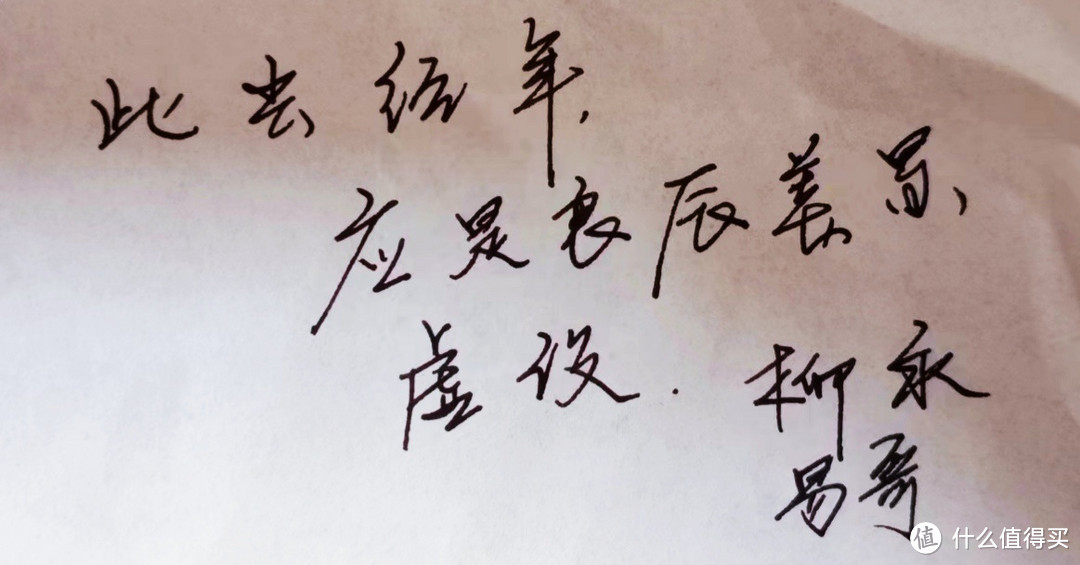 此去经年,
应是良辰美景
虚设.柳永
易哥
值 什么值得买